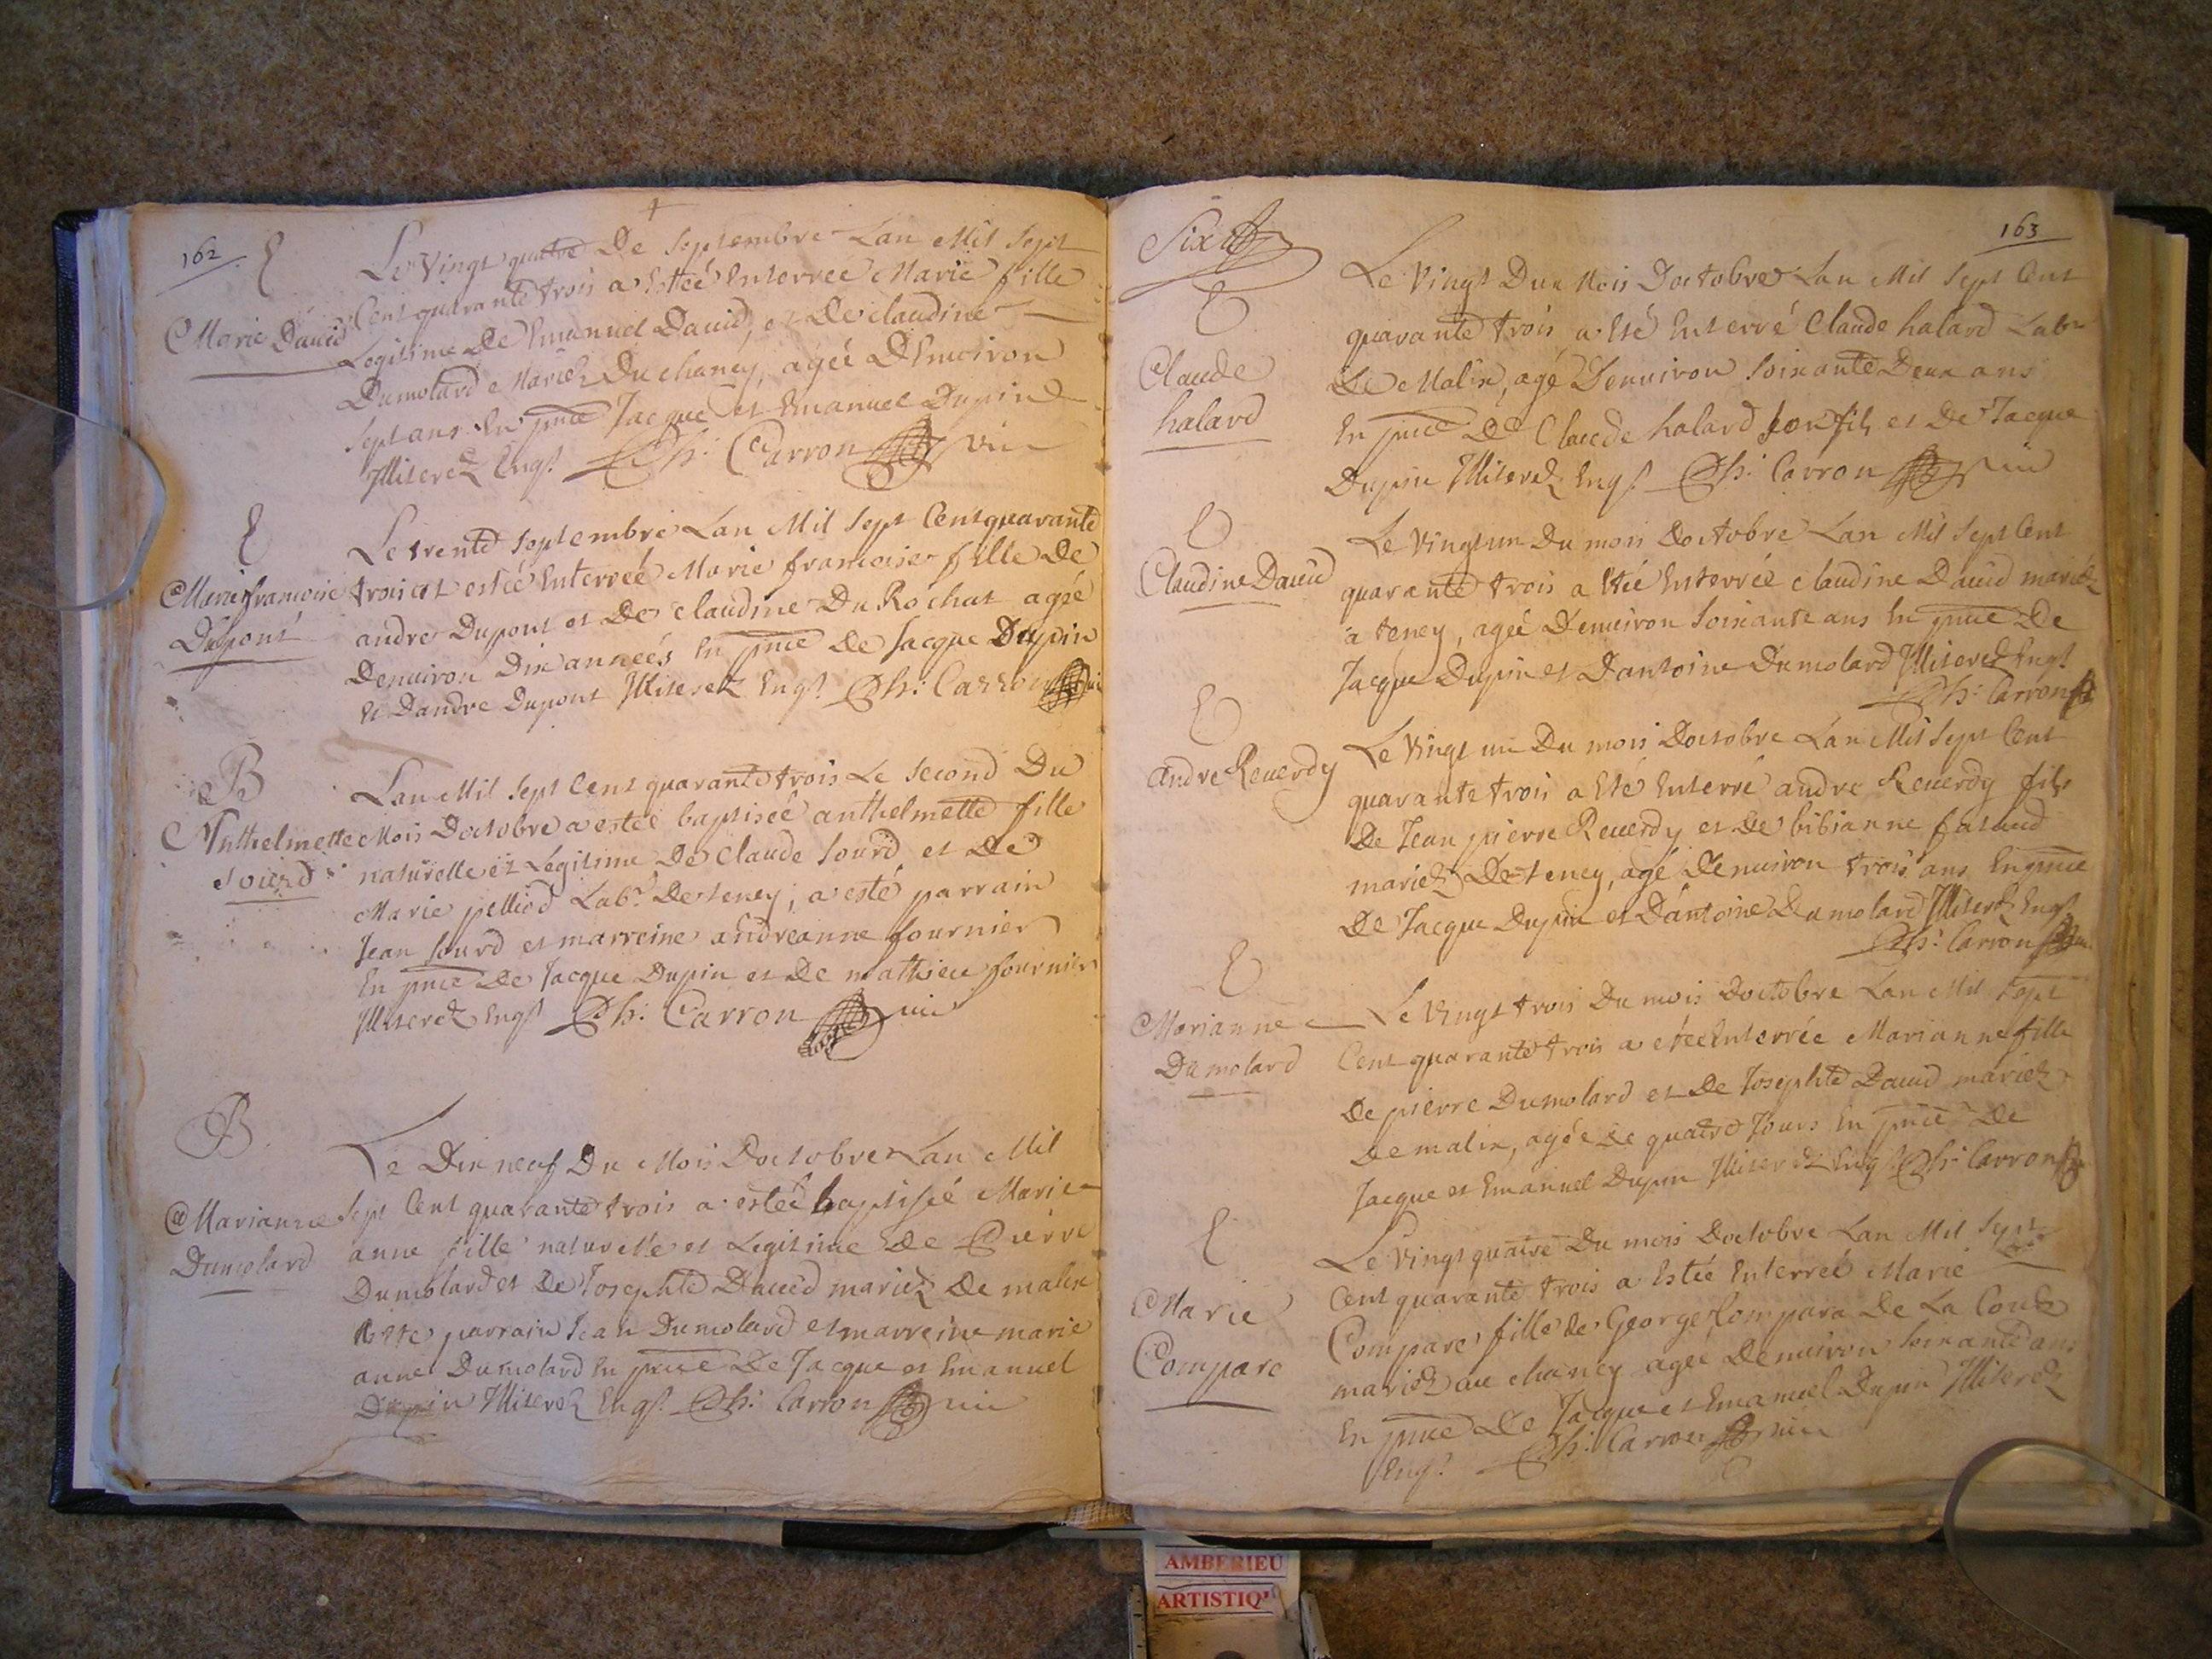 162
E
Marie Dauid
Le Vingt quatre De Septembre Lan Mil Sept
Cent quarante trois a Esteé Enterreé Marie fille
Legitime De Emanuel Dauid, et De claudine
Dumolard Mariez Du chaney, ageé D'Enuiron
Sept ans En pnce Jacque et Emanuel Dupin
Illiterez Engt Ph: Carron vic
E
Marie francoise
Dupont
Le trente Septembre Lan Mil Sept Cent quarante
trois at estéé Enterreé Marie francoise fille De
andre Dupont et De claudine Du Rochat ageé
Denuiron Dix anneés En pnce De Jacque Dupin
Et Dandre Dupont Illiterez Engt Ph: Carron vic
B
Anthelmette
Sourd
Lan Mil Sept Cent quarante trois Le Second Du
Mois Doctobre a esteé baptiseé anthelmette fille
naturelle et Legitime De Claude Sourd et De
Marie pelliod Labr De teney, a esté parrain
Jean Sourd et marreine andreanne fournier
En pnce De Jacque Dupin et De mathieu fournier
Illiterez Engt Ph: Carron vic
B
Marianne
Dumolard
Le Dix neuf Du Mois Doctobre Lan Mil
Sept Cent quarante trois a esteé baptiseé Marie
anne fille naturelle et Legitime De Pierre
Dumolard et De Josephte Dauid mariez De malix
parrain Jean Dumolard et marreine marie
anne Dumolard En pnce De Jacque et Emanuel
Dupin Illiterez Engt Ph: Carron vic
163
Six
E
Claude
halard
Le Vingt Du Mois Doctobre Lan Mil Sept Cent
quarante trois a Eté Enterré Claude halard Labr
De Malix, agé Denuiron Soixante Deux ans
En pnce De Claude halard son fils et De Jacque
Dupin Illiterez Engt Ph: Carron vic
E
Claudine Dauid
Le Vingt un Du mois Doctobre Lan Mil Sept Cent
quarante trois a Eteé Enterreé claudine Dauid mariez
a teney, ageé Denuiron Soixante ans En pnce De
Jacque Dupin et Dantoine Dumolard Illiterez Engt
Ph: Carron
E
andre Reuerdy
Le Vingt un Du mois Doctobre Lan Mil Sept Cent
quarante trois a Eté Enterré andre Reuerdy fils
De Jean pierre Reuerdy et De bibianne
mariez De teney, agé Denuiron trois ans En pnce
De Jacque Dupin et Dantoine Dumolard Illiterez Engt
Ph: Carron vic
E
Marianne
Dumolard
Le Vingt trois Du mois Doctobre Lan Mil Sept
Cent quarante trois a eteé Enterrée Marianne fille
De pierre Dumolard et De Josephte Dauid mariez
De malix, agéé De quatre Jours En pnce De
Jacque et Emanuel Dupin Illiterez Engt Ph: Carron
E
Marie
Compare
Le Vingt quatre Du mois Doctobre Lan Mil Sept
Cent quarante trois a Esteé Enterreé Marie
Compare fille de George Compara De La Couz
mariez au chaney ageé Denuiron soixante ans
En pnce De Jacque et Emanuel Dupin Illiterez
Engt Ph: Carron vic
AMBERIEU
ARTISTIQ